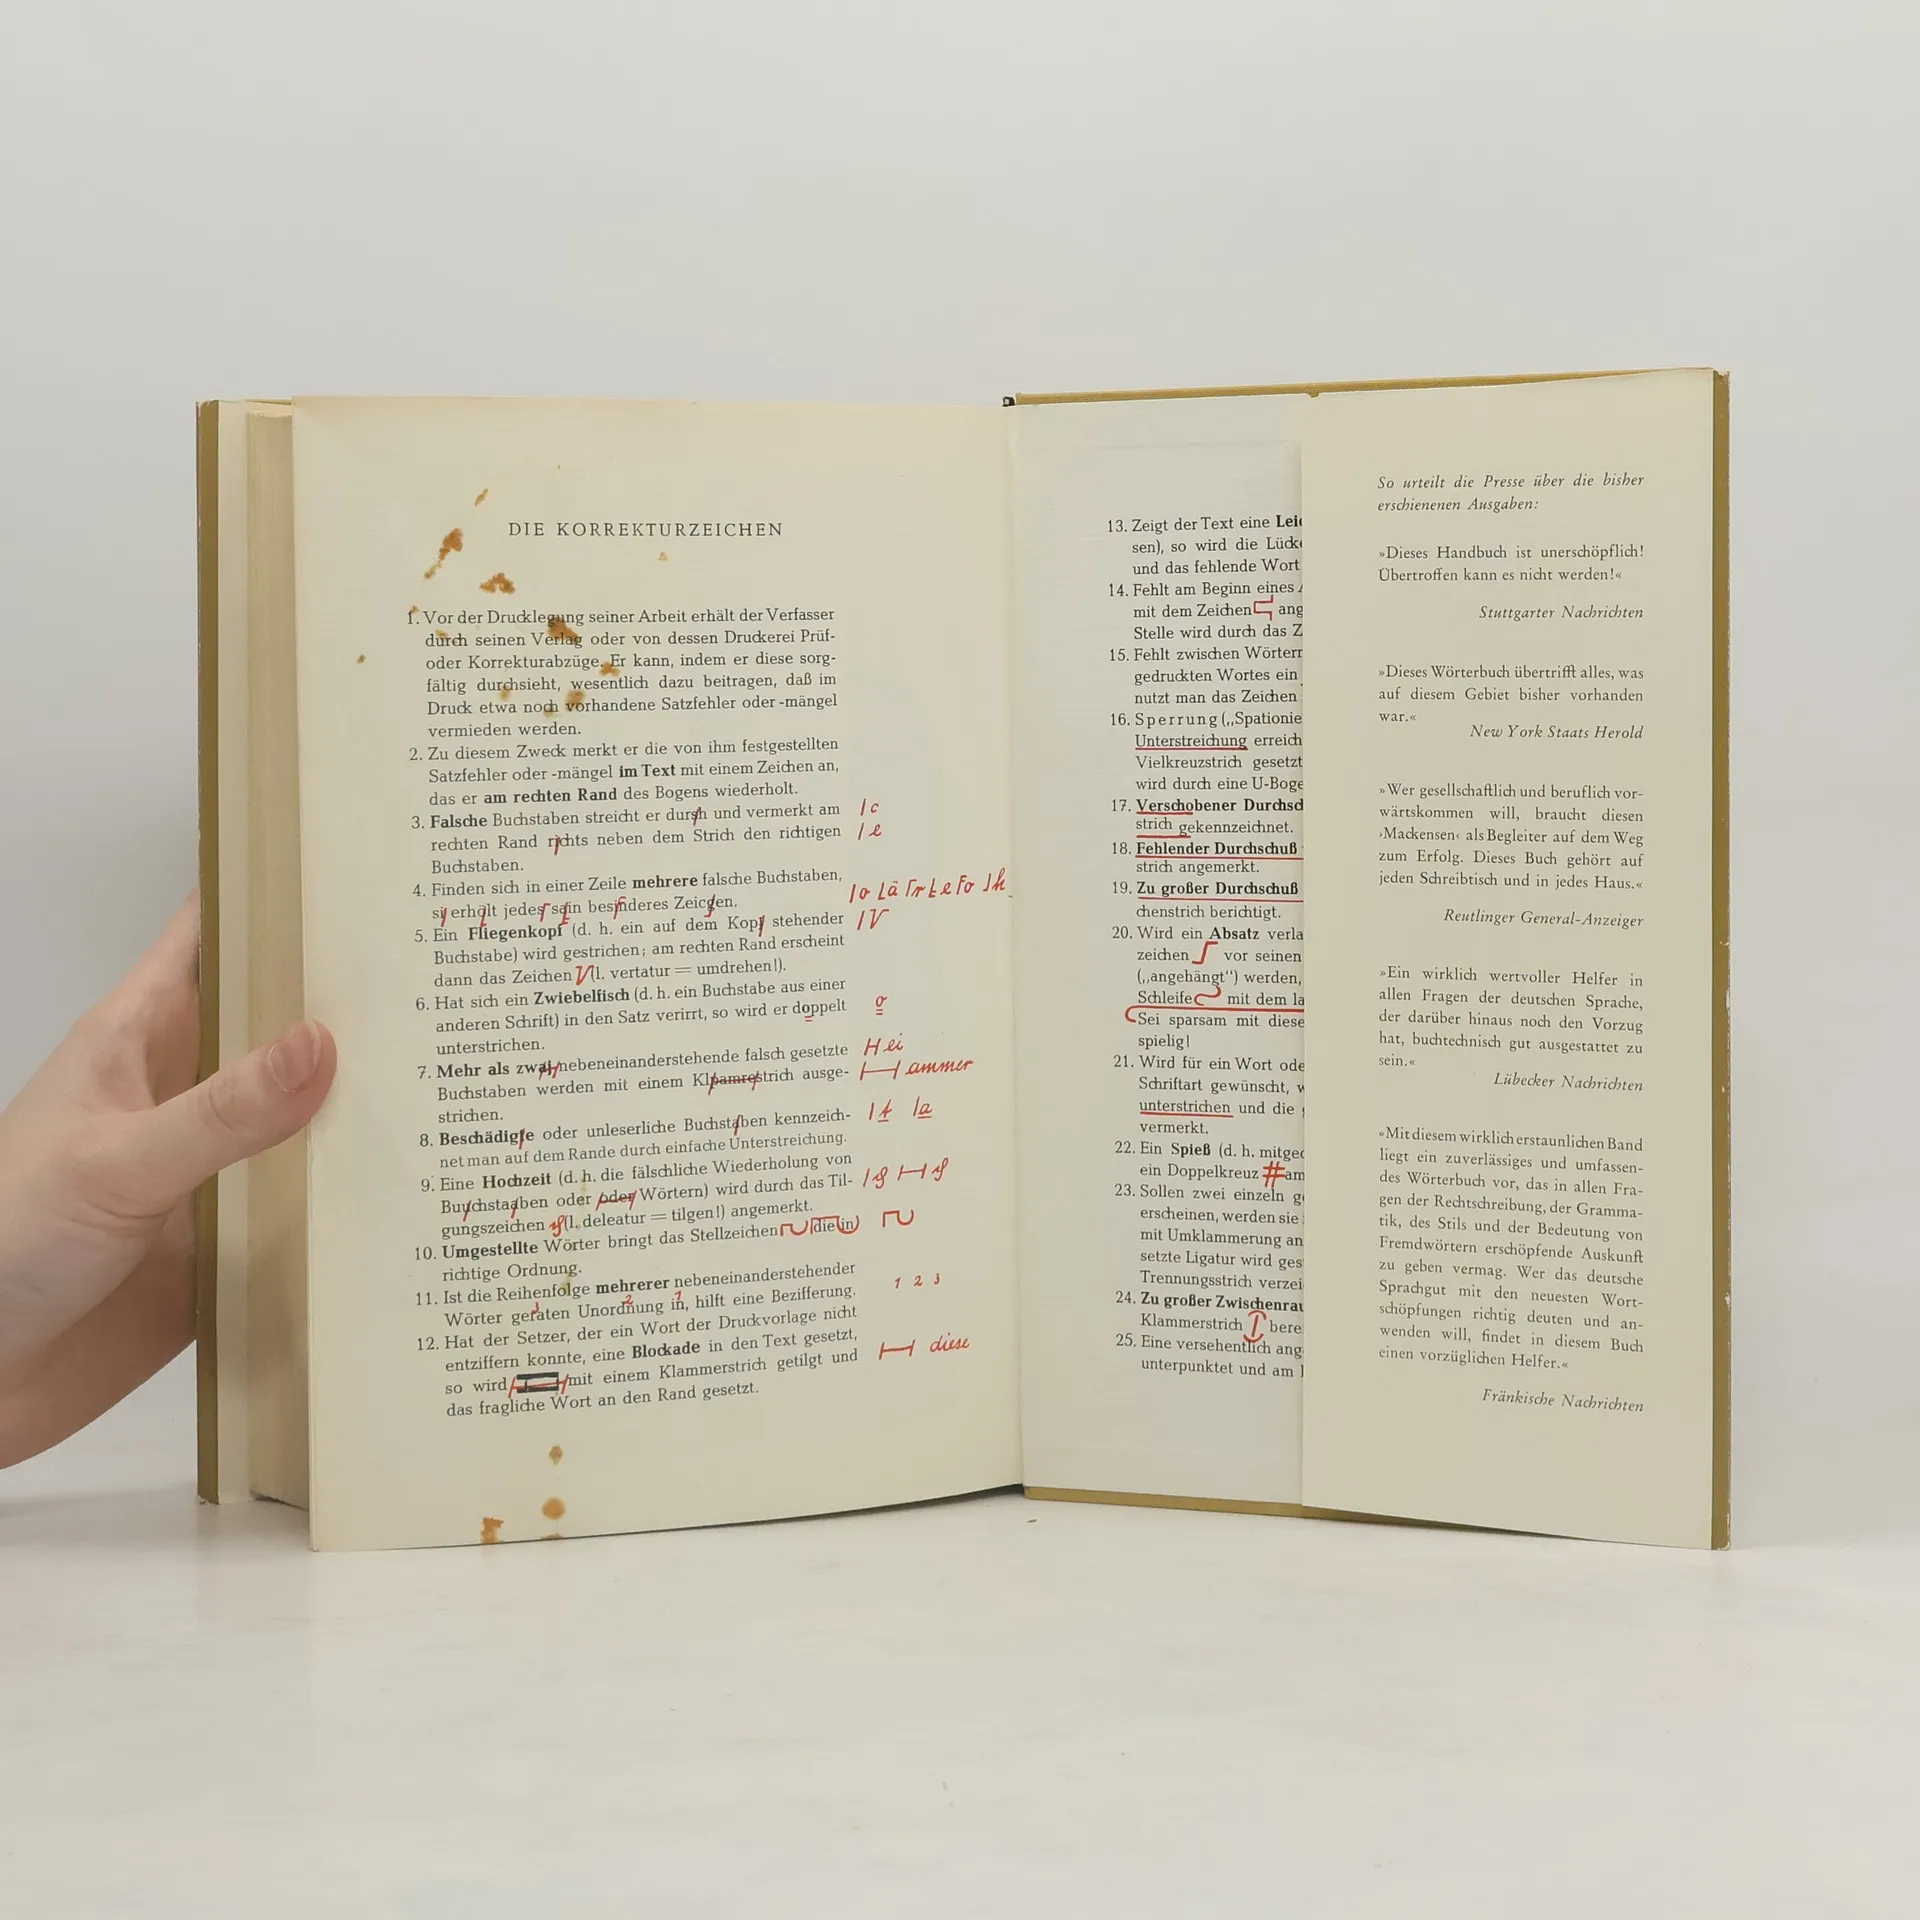 DIE KORREKTURZEICHEN
1. Vor der Drucklegung seiner Arbeit erhält der Verfasser
durch seinen Verlag oder von dessen Druckerei Prüf-
oder Korrekturabzüge. Er kann, indem er diese sorg-
fältig durchsieht, wesentlich dazu beitragen, daß im
Druck etwa noch vorhandene Satzfehler oder -mängel
vermieden werden.
2. Zu diesem Zweck merkt er die von ihm festgestellten
Satzfehler oder -mängel im Text mit einem Zeichen an,
das er am rechten Rand des Bogens wiederholt.
3. Falsche Buchstaben streicht er dursh und vermerkt am c
rechten Rand richts neben dem Strich den richtigen e
Buchstaben.
4. Finden sich in einer Zeile mehrere falsche Buchstaben,
erhält jedes sein besonderes o ä r e o h
5. Ein Fliegenkopf (d. h. ein auf dem Kopf stehender V
Buchstabe) wird gestrichen; am rechten Rand erscheint
dann das Zeichen V (l. vertatur = umdrehen!).
6. Hat sich ein Zwiebelfisch (d. h. ein Buchstabe aus einer
anderen Schrift) in den Satz verirrt, so wird er doppelt o
unterstrichen.
7. Mehr als nebeneinanderstehende falsch gesetzte H ei
Buchstaben werden mit einem Klpamrestrich ausge- H ammer
strichen.
8. Beschädigte oder unleserliche Buchstaben kennzeich- t a
net man auf dem Rande durch einfache Unterstreichung.
9. Eine Hochzeit (d. h. die fälschliche Wiederholung von
Buuchstaaben oder oder Wörtern) wird durch das Til-
gungszeichen (l. deleatur = tilgen!) angemerkt.
10. Umgestellte Wörter bringt das Stellzeichen die in
richtige Ordnung.
11. Ist die Reihenfolge mehrerer nebeneinanderstehender
Wörter geraten Unordnung in, hilft eine Bezifferung. 1 2 3
12. Hat der Setzer, der ein Wort der Druckvorlage nicht
entziffern konnte, eine Blockade in den Text gesetzt,
so wird mit einem Klammerstrich getilgt und diese
das fragliche Wort an den Rand gesetzt.
13. Zeigt der Text eine
sen), so wird die
und das fehlende Wort
14. Fehlt am Beginn eines
mit dem Zeichen
Stelle wird durch das
15. Fehlt zwischen
gedruckten Wortes ein
nutzt man das Zeichen
16. Sperrung
Unterstreichung
Vielkreuzstrich gesetzt
wird durch eine
17. Verschobener
strich gekennzeichnet.
18. Fehlender Durchschuß
strich angemerkt.
19. Zu großer Durchschuß
chenstrich berichtigt.
20. Wird ein Absatz
zeichen vor seinen
(„angehängt“) werden,
Schleife mit dem
Sei sparsam mit
spielig!
21. Wird für ein Wort
Schriftart gewünscht,
unterstrichen und die
vermerkt.
22. Ein Spieß (d. h.
ein Doppelkreuz #
23. Sollen zwei einzeln
erscheinen, werden sie
mit Umklammerung
setzte Ligatur wird
Trennungsstrich
24. Zu großer
Klammerstrich
25. Eine versehentlich
unterpunktet und am
So urteilt die Presse über die bisher
erschienenen Ausgaben:
»Dieses Handbuch ist unerschöpflich!
Übertroffen kann es nicht werden!«
Stuttgarter Nachrichten
»Dieses Wörterbuch übertrifft alles, was
auf diesem Gebiet bisher vorhanden
war.«
New York Staats Herold
»Wer gesellschaftlich und beruflich vor-
wärtskommen will, braucht diesen
›Mackensen‹ als Begleiter auf dem Weg
zum Erfolg. Dieses Buch gehört auf
jeden Schreibtisch und in jedes Haus.«
Reutlinger General-Anzeiger
»Ein wirklich wertvoller Helfer in
allen Fragen der deutschen Sprache,
der darüber hinaus noch den Vorzug
hat, buchtechnisch gut ausgestattet zu
sein.«
Lübecker Nachrichten
»Mit diesem wirklich erstaunlichen Band
liegt ein zuverlässiges und umfassen-
des Wörterbuch vor, das in allen Fra-
gen der Rechtschreibung, der Gramma-
tik, des Stils und der Bedeutung von
Fremdwörtern erschöpfende Auskunft
zu geben vermag. Wer das deutsche
Sprachgut mit den neuesten Wort-
schöpfungen richtig deuten und an-
wenden will, findet in diesem Buch
einen vorzüglichen Helfer.«
Fränkische Nachrichten